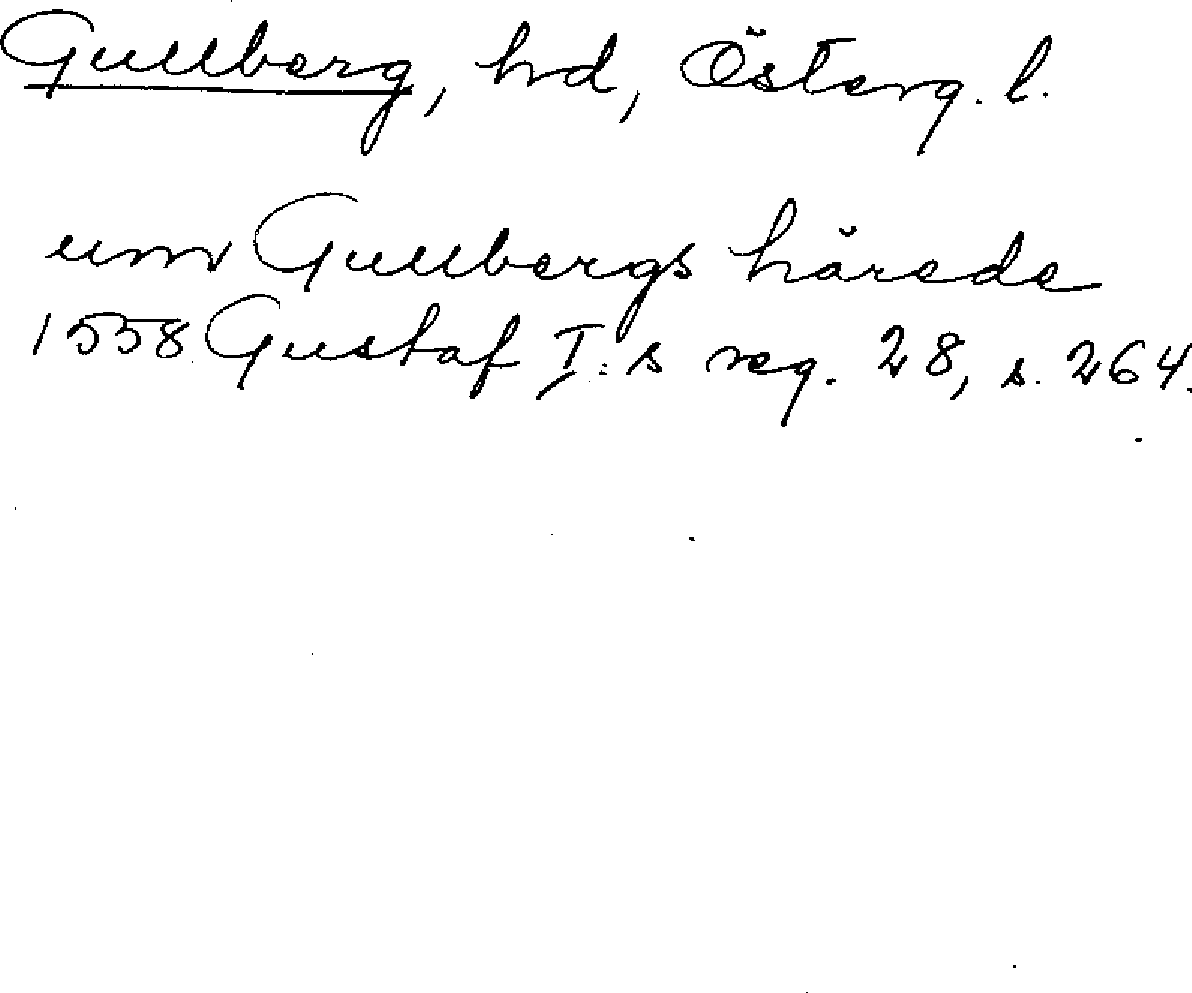 Gullberg, hd, Österg. l.
um Gullbergs härede
1558 Gustaf I:s reg. 28, s. 264.